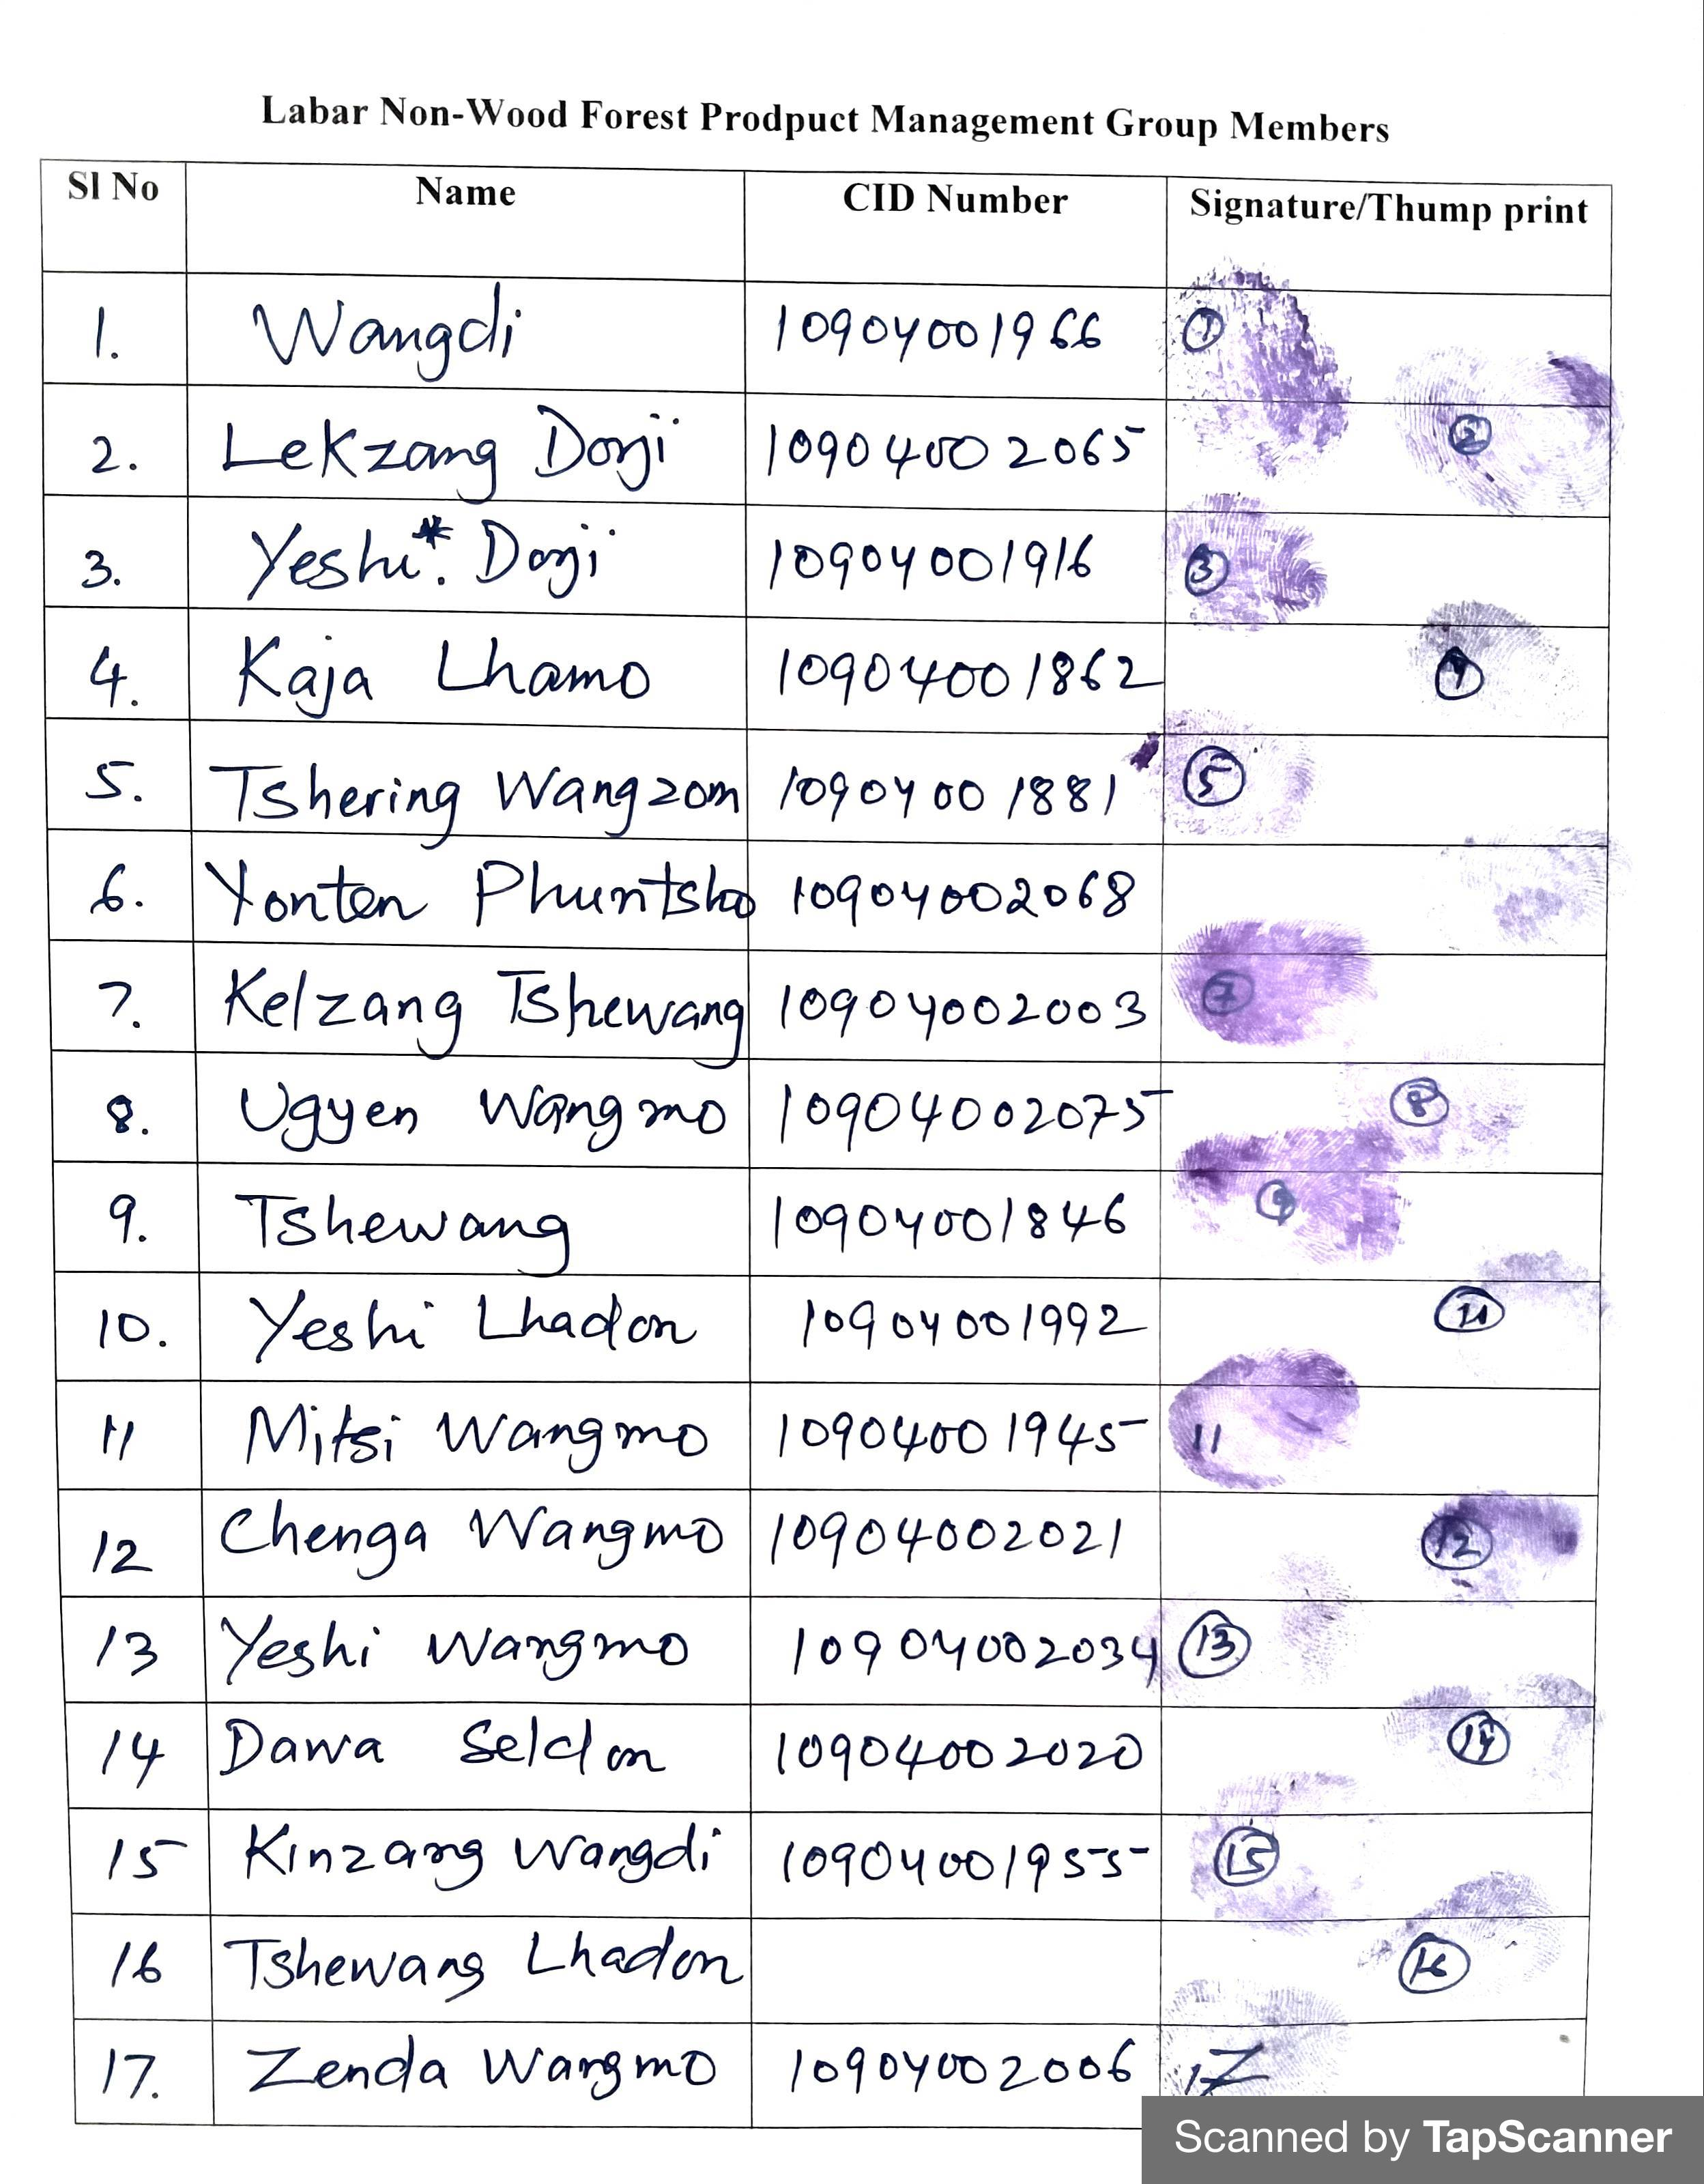 Labar Non-Wood Forest Prodpuct Management Group Members
Sl No Name CID Number Signature/Thump print
1. Wangdi 10904001966 1
2. Lekzang Dorji 10904002065 2
3. Yeshi*. Dorji 10904001916 3
4. Kaja Lhamo 10904001862 4
5. Tshering Wangzom 10904001881 5
6. Yonten Phuntsho 10904002068
7. Kelzang Tshewang 10904002003 7
8. Ugyen Wangmo 10904002075 8
9. Tshewang 10904001846 9
10. Yeshi Lhadon 10904001992
11 Mitsi Wangmo 10904001945 11
12 Chenga Wangmo 10904002021 12
13 Yeshi Wangmo 10904002034 13
14 Dawa Seldon 10904002020 14
15 Kinzang Wangdi 10904001955 15
16 Tshewang Lhadon 16
17. Zenda Wangmo 10904002006 17
Scanned by TapScanner